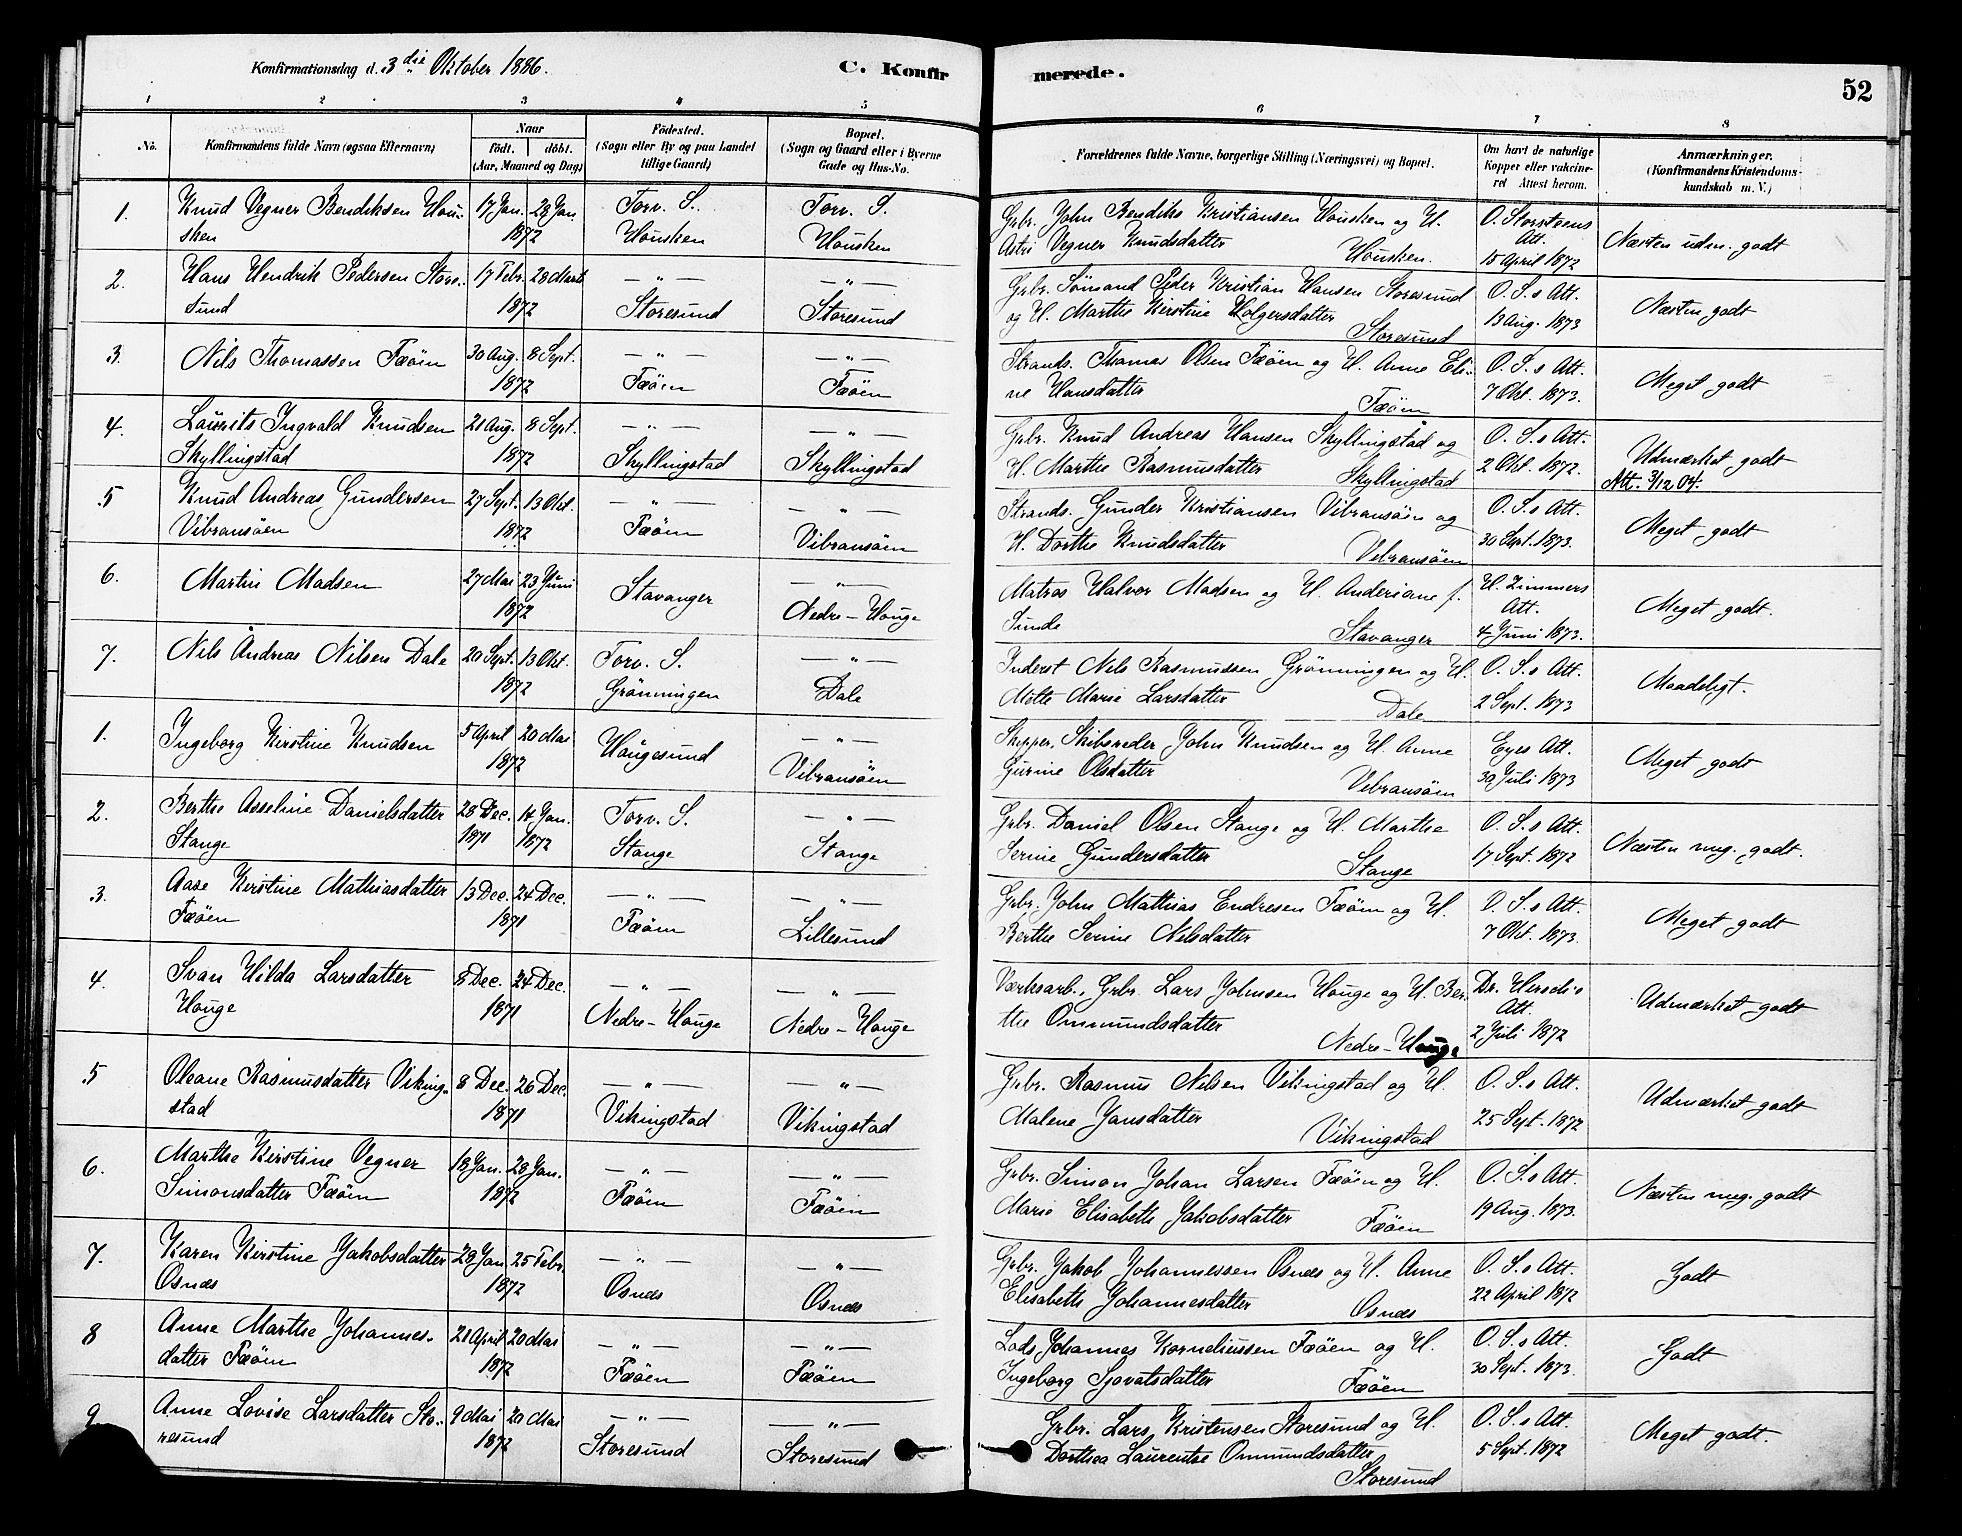 Konfirmationsdag d. 3die Oktober 1886.
C. Konfirmerede.
52
1 2 3 4 5 6 7 8
No.
Konfirmandens fulde Navn (ogsaa Efternavn)
Naar
födt. döbt.
(Aar, Maaned og Dag)
Födested.
(Sogn eller By og paa Landet
tillige Gaard)
Bopæl.
(Sogn og Gaard eller i Byerne
Gade og Hus-No.
Forældrenes fulde Navne, borgerlige Stilling (Næringsvei) og Bopæl.
Om havt de naturlige
Kopper eller vakcine-
ret Attest herom.
Anmærkninger.
(Konfirmandens Kristendoms-
kundskab m. V.)
1. Knud Vegner Bendiksen Hou- 17 Jan. 28 Jan Torv. S. Torv. S. Grbr. John Bendiks Kristiansen Housken og H. O. Storsteens
sken 1872 Housken Housken Astri Vegner Knudsdatter Housken. Att. 15 April 1872 Næsten udm. godt
2. Hans Hendrik Pedersen Store- 17 Febr. 28 Marts — " — — " — Grbr. Sömand Peder Kristian Hansen Storesund O. S.s Att.
sund 1872 Storesund Storesund og H. Marthe Kirstine Holgersdatter Storesund 13 Aug. 1873 Næsten godt
3. Nils Thomassen Fæöen 30 Aug. 8 Sept. — " — — " — Strands. Thomas Olsen Fæöen og H. Anne Eli- O. S.s Att.
1872 Fæöen Fæöen ne Hansdatter Fæöen 7 Okt. 1873. Meget godt
4. Laurits Ingvald Knudsen 21 Aug. 8 Sept. — " — — " — Grbr. Knud Andreas Hansen Skyllingstad og O. S.s Att.
Skyllingstad 1872 Skyllingstad Skyllingstad H. Marthe Rasmusdatter Skyllingstad 2 Okt. 1872. Udmærket godt
Att. 3/12 04.
5 Knud Andreas Gundersen 27 Sept. 13 Okt. — " — — " — Strands. Gunder Kristiansen Vibransöen og O. S.s Att.
Vibransöen 1872 Fæöen Vibransöen H. Dorthe Knudsdatter Vibransöen 30 Sept. 1873. Meget godt
6. Martin Madsen 27 Mai 23 Juni Stavanger — " — Matros Halvor Madsen og H. Anderiane f. H. Zimmers
1872 Nedre-Houge Sunde Stavanger Att. 4 Juni 1873. Meget godt.
7. Nils Andreas Nilsen Dale 20 Sept. 13 Okt. Torv. S. — " — Inderst Nils Rasmussen Grönningen og H. O. S.s Att.
1872 Grönningen Dale Mette Marie Larsdatter Dale 2 Sept. 1873 Maadeligt.
1. Ingeborg Kirstine Knudsen 5 April 20 Mai Hougesund — " — Skipper, Skibsreder John Knudsen og H. Anne Eyes Att.
1872 Vibransöen Gurine Olsdatter Vibransöen 30 Juli 1873 Meget godt
2. Berthe Asseline Danielsdatter 28 Dec. 14 Jan. Torv. S. — " — Grbr. Daniel Olsen Stange og H. Marthe O. S.s Att.
Stange 1871 1872 Stange Stange Serine Gundersdatter Stange 17 Sept. 1872 Næsten meg. godt.
3. Aase Kirstine Mathiasdatter 13 Dec. 24 Dec. — " — — " — Grbr. John Mathias Endresen Fæöen og H. O. S.s Att.
Fæöen 1871 Fæöen Lillesund Berthe Serine Nilsdatter 7 Okt. 1873. Meget godt
4. Svan Hilda Larsdatter 8 Dec. 24 Dec. — " — — " — Værksarb., Grbr. Lars Johnsen Houge og H. Ber- Dr. Att.
Houge 1871 Nedre-Houge Nedre-Houge the Ommundsdatter Nedre-Houge 2 Juli 1872 Udmærket godt
5 Oleane Rasmusdatter Viking- 8 Dec. 26 Dec. — " — — " — Grbr. Rasmus Nilsen Vikingstad og H. O. S.s Att.
stad 1871 Vikingstad Vikingstad Malene Jansdatter Vikingstad 25 Sept. 1872 Udmærket godt
6. Marthe Kirstine Vegner 18 Jan. 28 Jan. — " — — " — Grbr. Simon Johan Larsen Fæöen og H. O. S.s Att.
Simonsdatter Fæöen 1872 Fæöen Fæöen Marie Elisabeth Jakobsdatter Fæöen 19 Aug. 1873. Næsten meg. godt
7. Karen Kirstine Jakobsdatter 28 Jan. 25 Febr. — " — — " — Grbr. Jakob Johannessen Osnæs og H. Anne O. S.s Att.
Osnæs 1872 Osnæs Osnæs Elisabeth Johannesdatter Osnæs 22 April 1872 Godt
8 Anne Marthe Johannes- 21 April 20 Mai — " — — " — Lods Johannes Korneliussen Fæöen og H. O. S.s Att.
datter Fæöen 1872 Fæöen Fæöen Ingeborg Sjovatsdatter Fæöen 30 Sept. 1873. Godt
9 Anne Lovise Larsdatter Sto- 9 Mai 20 Mai — " — — " — Grbr. Lars Kristensen Storesund og H. O. S.s Att.
resund 1872 Storesund Storesund Dorthea Laurentse Ommundsdatter Storesund 5 Sept. 1872 Meget godt